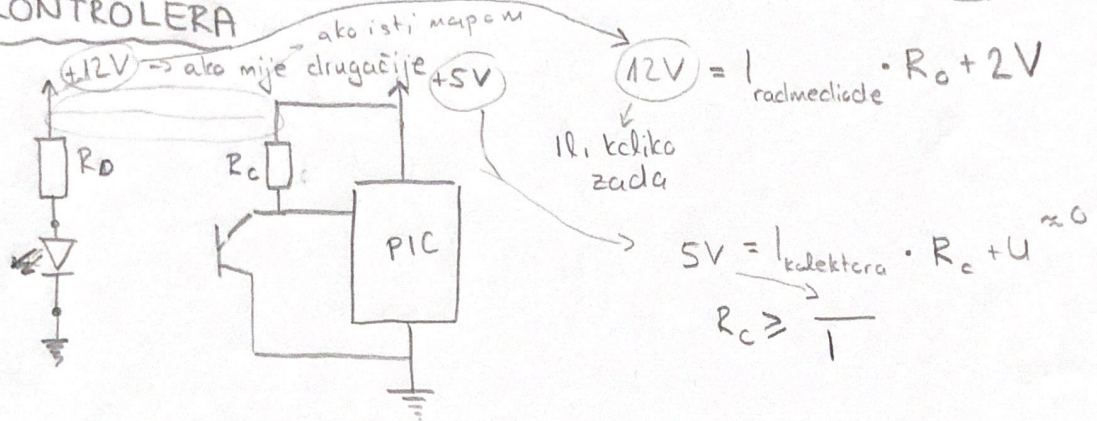 KONTROLERA
ako isti napon
+12V → ako nije drugačije +5V
12V = I radne diode · R D + 2V
Ili koliko
zada
R D
R C
PIC
5V = I kolektora · R C + U ≈0
R C ≥ — I